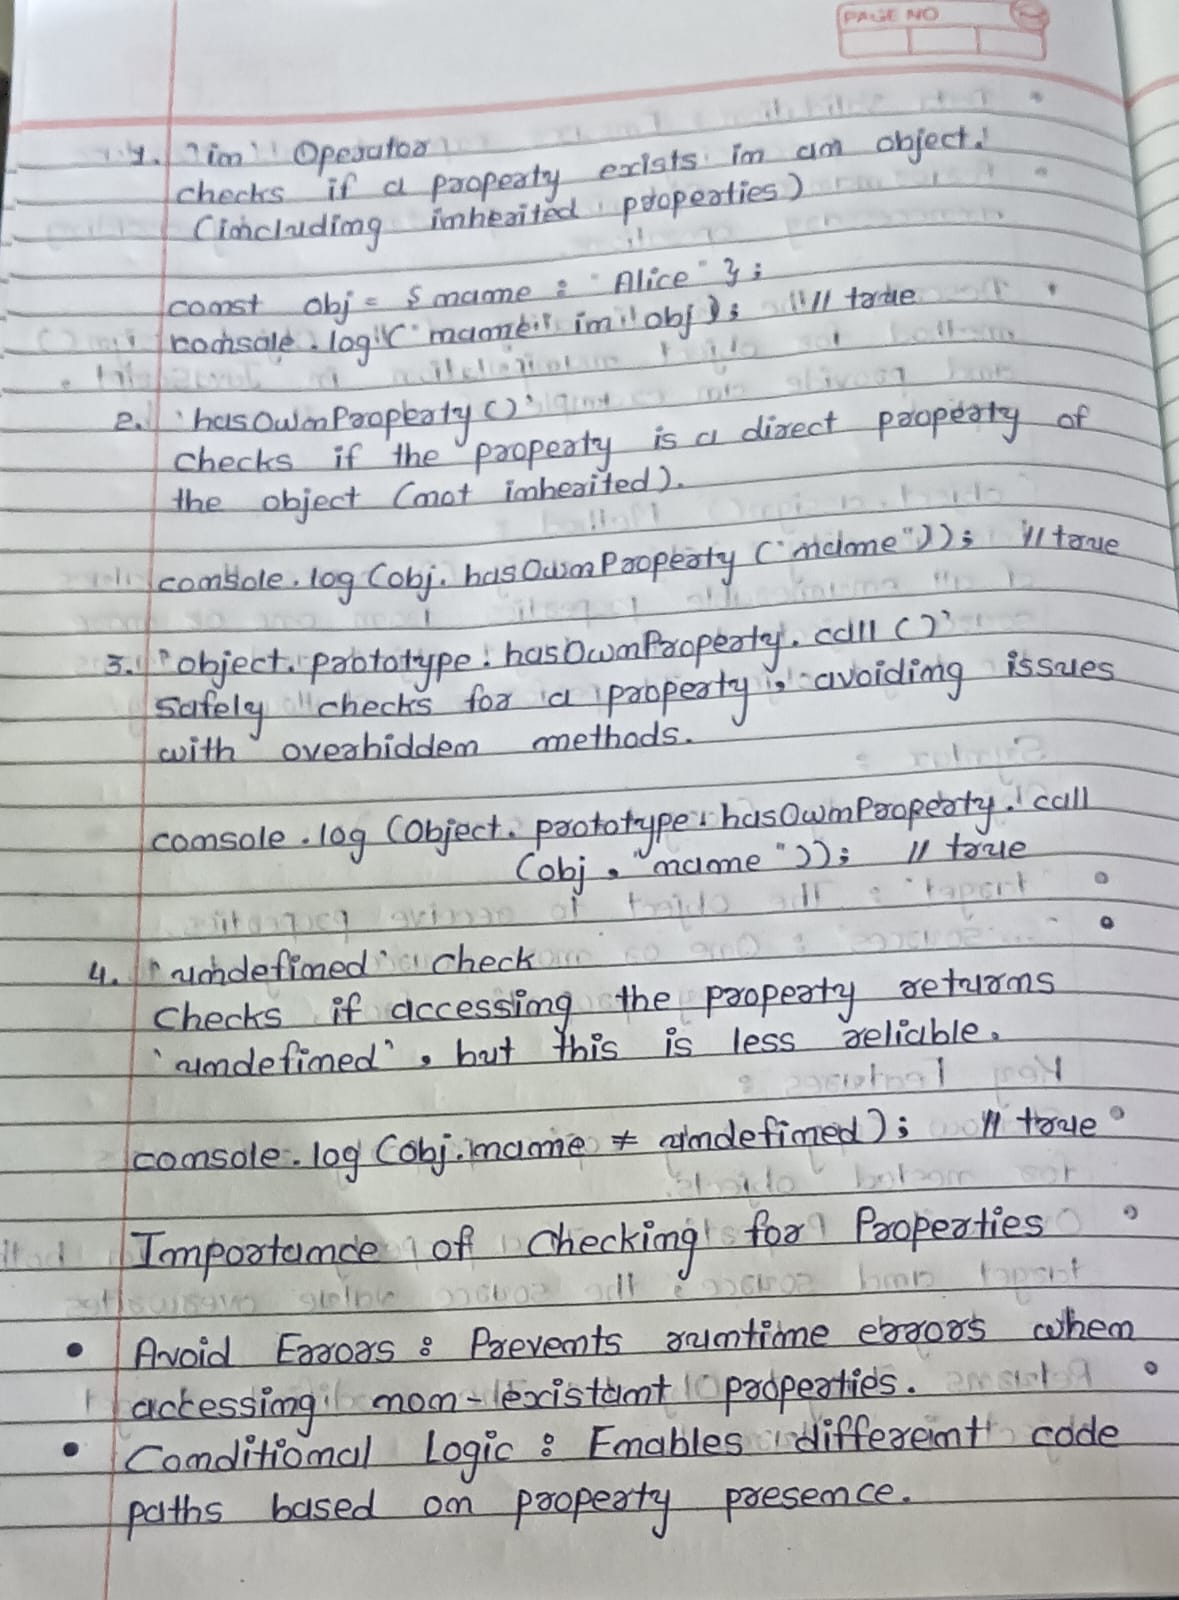 PAGE NO
1. 'in' Operator
checks if a property exists in an object.
(including inherited properties)
const obj = { name : "Alice" };
console.log("name" in obj); // true
2. 'hasOwnProperty()'
checks if the property is a direct property of
the object (not inherited).
console.log(obj.hasOwnProperty("name")); // true
3. 'object.prototype.hasOwnProperty.call()'
Safely checks for a property, avoiding issues
with overhidden methods.
console.log(Object.prototype.hasOwnProperty.call
(obj, "name")); // true
4. 'undefined' check
Checks if accessing the property returns
'undefined', but this is less reliable.
console.log(obj.name ≠ undefined); // true
Importance of Checking for Properties
• Avoid Errors : Prevents runtime errors when
accessing non-existant properties.
• Conditional Logic : Enables different code
paths based on property presence.